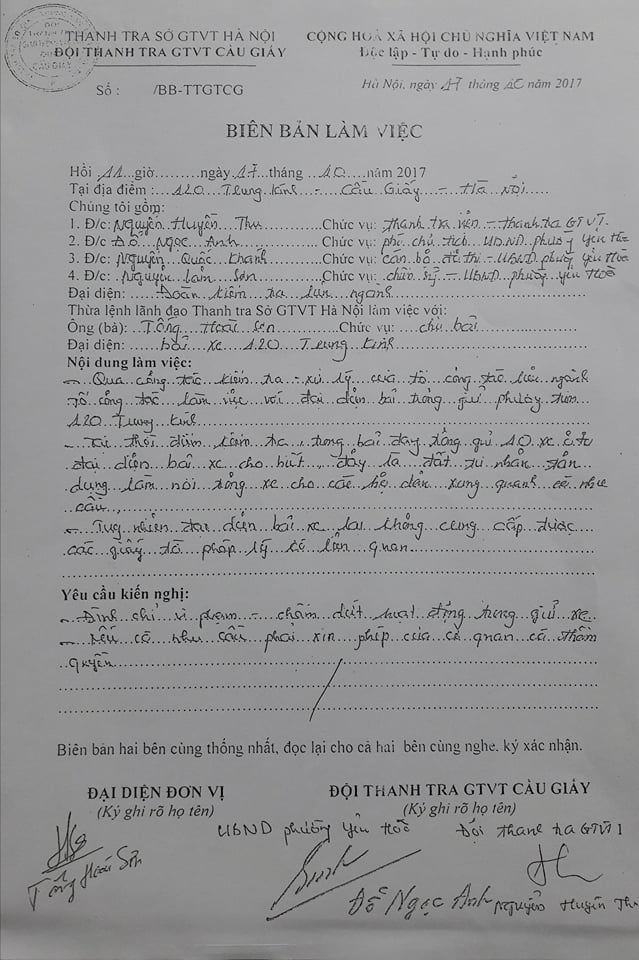 THANH TRA SỞ GTVT HÀ NỘI
ĐỘI THANH TRA GTVT CẦU GIẤY
Số : /BB-TTGTCG
CỘNG HOÀ XÃ HỘI CHỦ NGHĨA VIỆT NAM
Độc lập - Tự do - Hạnh phúc
Hà Nội, ngày 17 tháng 10 năm 2017
BIÊN BẢN LÀM VIỆC
Hồi 11 giờ.........ngày 17 tháng 10 năm 2017
Tại địa điểm : 120 Trung Kính - Cầu Giấy - Hà Nội
Chúng tôi gồm:
1. Đ/c: Nguyễn Huyền Thu Chức vụ: thanh tra viên - thanh tra GTVT
2. Đ/c Đỗ Ngọc Anh Chức vụ: phó chủ tịch UBND phường Yên Hòa
3. Đ/c: Nguyễn Quốc Khánh Chức vụ: cán bộ đô thị - UBND phường Yên Hòa
4. Đ/c: Nguyễn Lam Sơn Chức vụ: UBND phường Yên Hoà
Đại diện: Đoàn kiểm tra liên ngành
Thừa lệnh lãnh đạo Thanh tra Sở GTVT Hà Nội làm việc với:
Ông (bà): Tống Hoài Sơn Chức vụ: chủ bãi
Đại diện: bãi xe 120 Trung Kính
Nội dung làm việc:
- Qua công tác kiểm tra - xử lý của tổ công tác liên ngành
Tổ công tác làm việc với đại diện bãi trông giữ
120 Trung Kính
- Tại thời điểm kiểm tra, trong bãi đang trông giữ 10 xe ô tô
đại diện bãi xe cho biết, đây là đất tư nhân tận
dụng làm nơi trông xe cho các hộ dân xung quanh có nhu
cầu.
- Tuy nhiên đại diện bãi xe không cung cấp được
các giấy tờ pháp lý có liên quan
Yêu cầu kiến nghị:
- Đình chỉ vi phạm - chấm dứt hoạt động trông giữ xe
- Nếu có nhu cầu phải xin phép của cơ quan có thẩm
quyền
Biên bản hai bên cùng thống nhất, đọc lại cho cả hai bên cùng nghe, ký xác nhận.
ĐẠI DIỆN ĐƠN VỊ
(Ký ghi rõ họ tên)
Tống Hoài Sơn
ĐỘI THANH TRA GTVT CẦU GIẤY
(Ký ghi rõ họ tên)
UBND phường Yên Hoà Đội thanh tra GTVT
Đỗ Ngọc Anh Nguyễn Huyền Thu